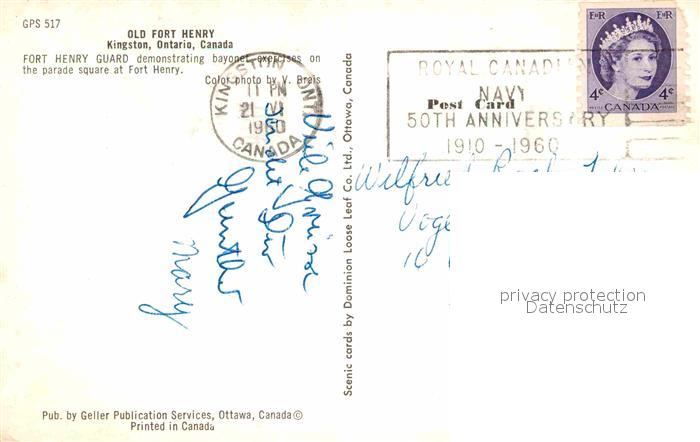 GPS 517
OLD FORT HENRY
Kingston, Ontario, Canada
FORT HENRY GUARD demonstrating bayonet exercises on
the parade square at Fort Henry.
Color photo by V. Brais
KINGSTON ONT
11 PM
21 VI
1960
CANADA
Viele Grüsse
Gunther
Mary
Pub. by Geller Publication Services, Ottawa, Canada ©
Printed in Canada
Scenic cards by Dominion Loose Leaf Co. Ltd., Ottawa, Canada
ROYAL CANADIAN
NAVY
Post Card
50TH ANNIVERSARY
1910 - 1960
E II R E II R
4c 4c
CANADA
Wilfried
Voge
10
privacy protection
Datenschutz